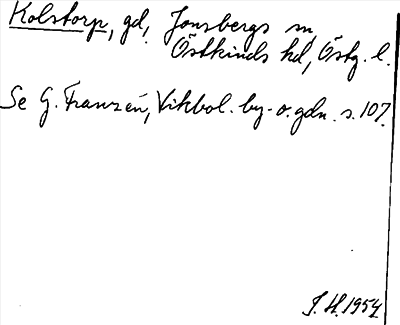 Kolstorp, gd, Jonsbergs sn,
Östkinds hd, Östg. l.
Se G. Franzén, Vikbol. by- o. gdn. s. 107.
J. H. 1954